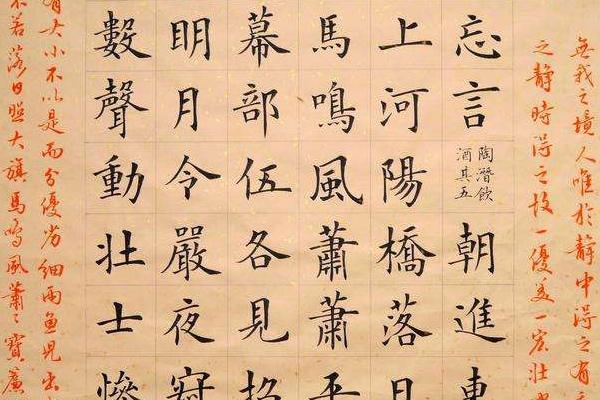 無我之境人唯於靜中得之有
之靜時得之故一優美一宏壯也
忘言
陶潛飲
酒其五
朝進東
上河陽橋落日
馬鳴風蕭蕭平
幕部伍各見招
明月令嚴夜寂
數聲動壯士慘
有大小不以是而分優劣細雨魚兒出
不若落日照大旗馬鳴風蕭々寶簾